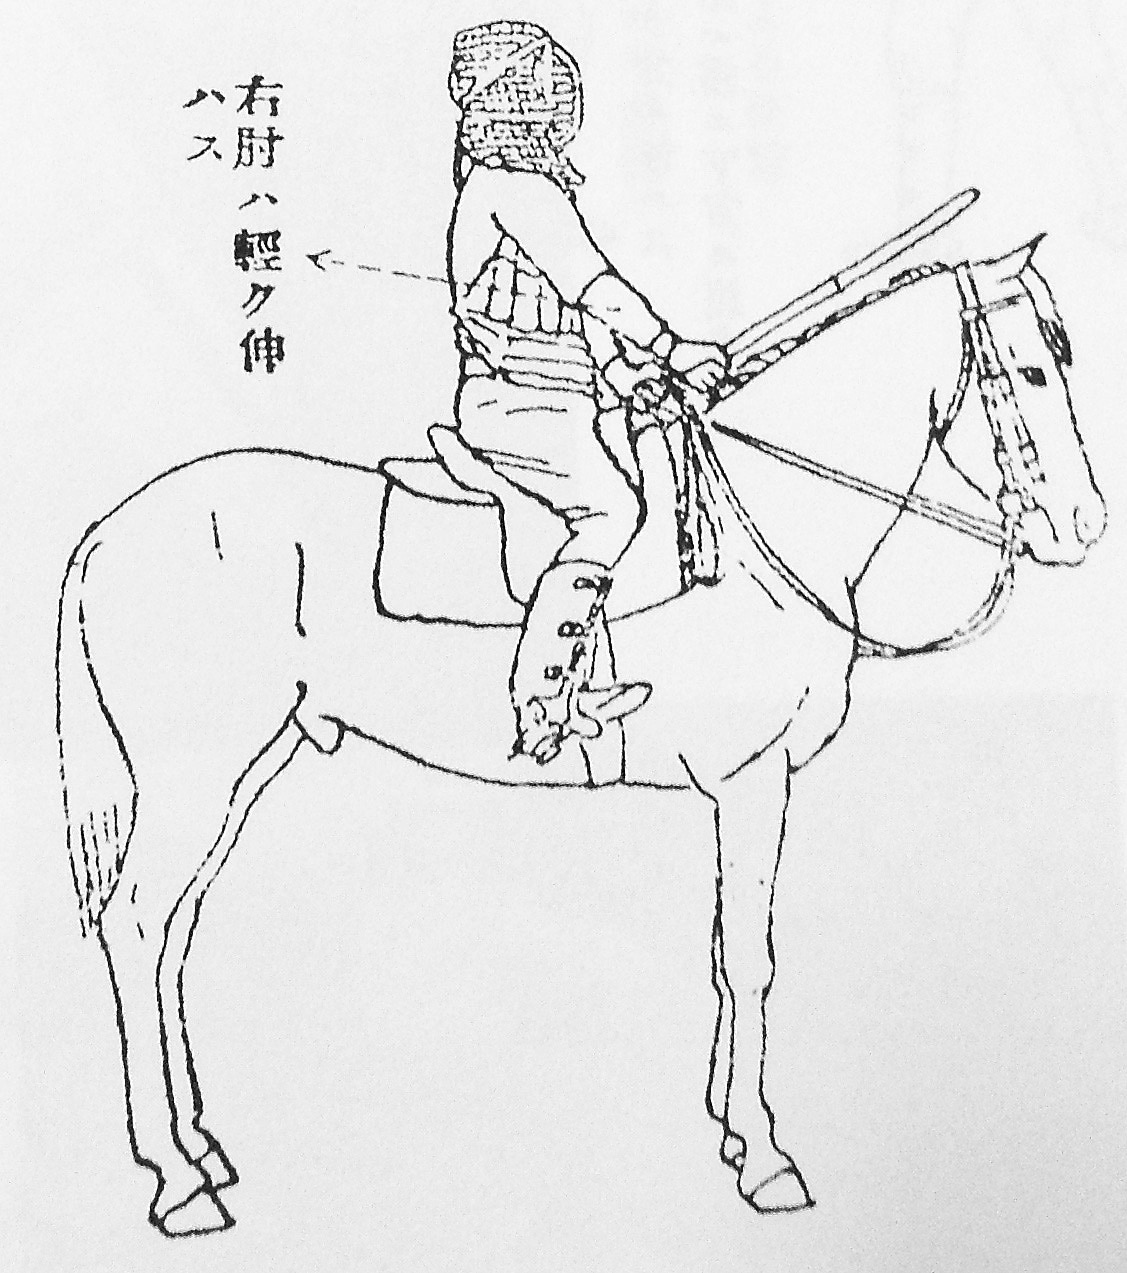 右肘ハ輕ク伸
ハス